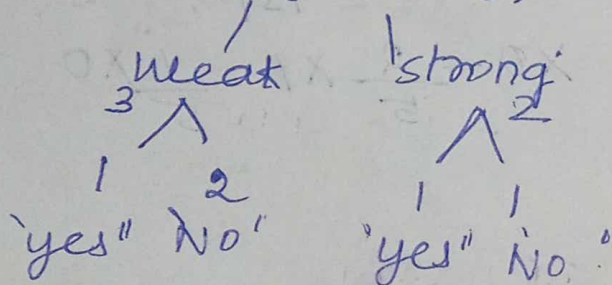 weak 'strong'
3 2
1 2 1 1
'yes" No' 'yes" No'